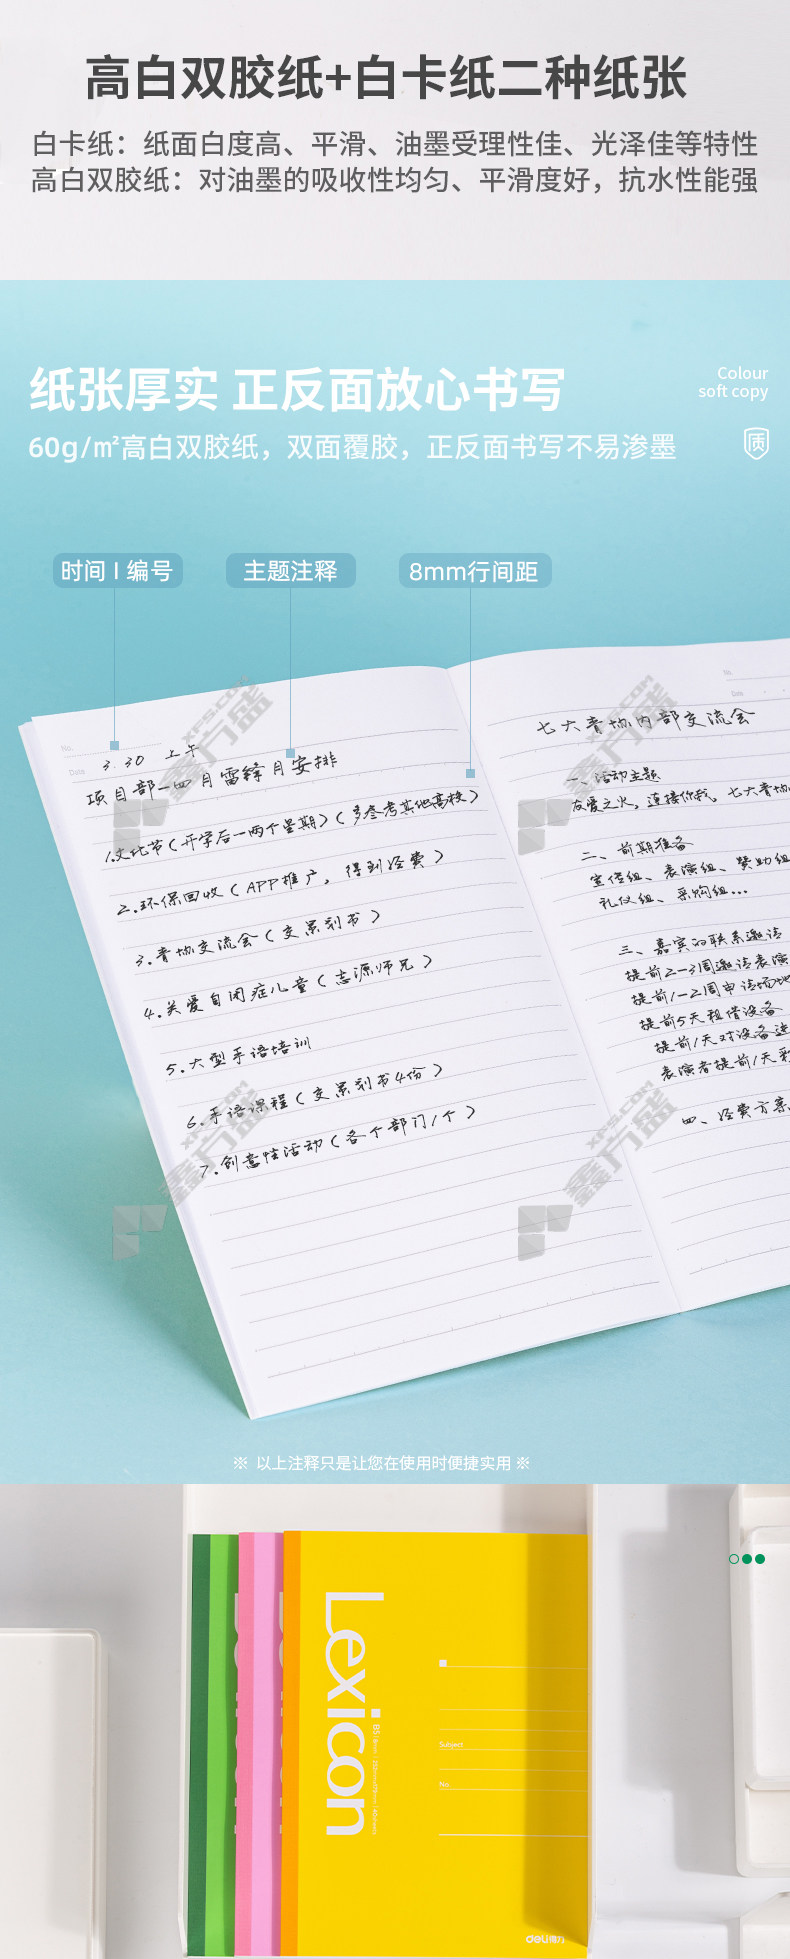 高白双胶纸+白卡纸二种纸张
白卡纸：纸面白度高、平滑、油墨受理性佳、光泽佳等特性
高白双胶纸：对油墨的吸收性均匀、平滑度好，抗水性能强
纸张厚实 正反面放心书写
Colour
soft copy
60g/㎡高白双胶纸，双面覆胶，正反面书写不易渗墨
质
时间 | 编号
主题注释
8mm行间距
No.
Date
3.30 上午
项目部一四月雷锋月安排
1.文化节（开学后一两个星期）（多参考其他高校）
2.环保回收（APP推广，得到经费）
3.青协交流会（交策划书）
4.关爱自闭症儿童（志源师兄）
5.大型手语培训
6.手语课程（交策划书4份）
7.创意性活动（各个部门1个）
No.
Date
七大青协内部交流会
一、活动主题
友爱之火，连接你我，七大青协
二、前期准备
宣传组、表演组、赞助组
礼仪组、采购组...
三、嘉宾的联系邀请
提前2-3周邀请表演
提前1-2周申请场地
提前5天租借设备
提前1天对设备进
表演者提前1天彩
四、经费方案
XFS.COM
鑫方盛
XFS.COM
鑫方盛
XFS.COM
鑫方盛
XFS.COM
鑫方盛
※ 以上注释只是让您在使用时便捷实用 ※
Lexicon
B5
Subject
No.
deli得力